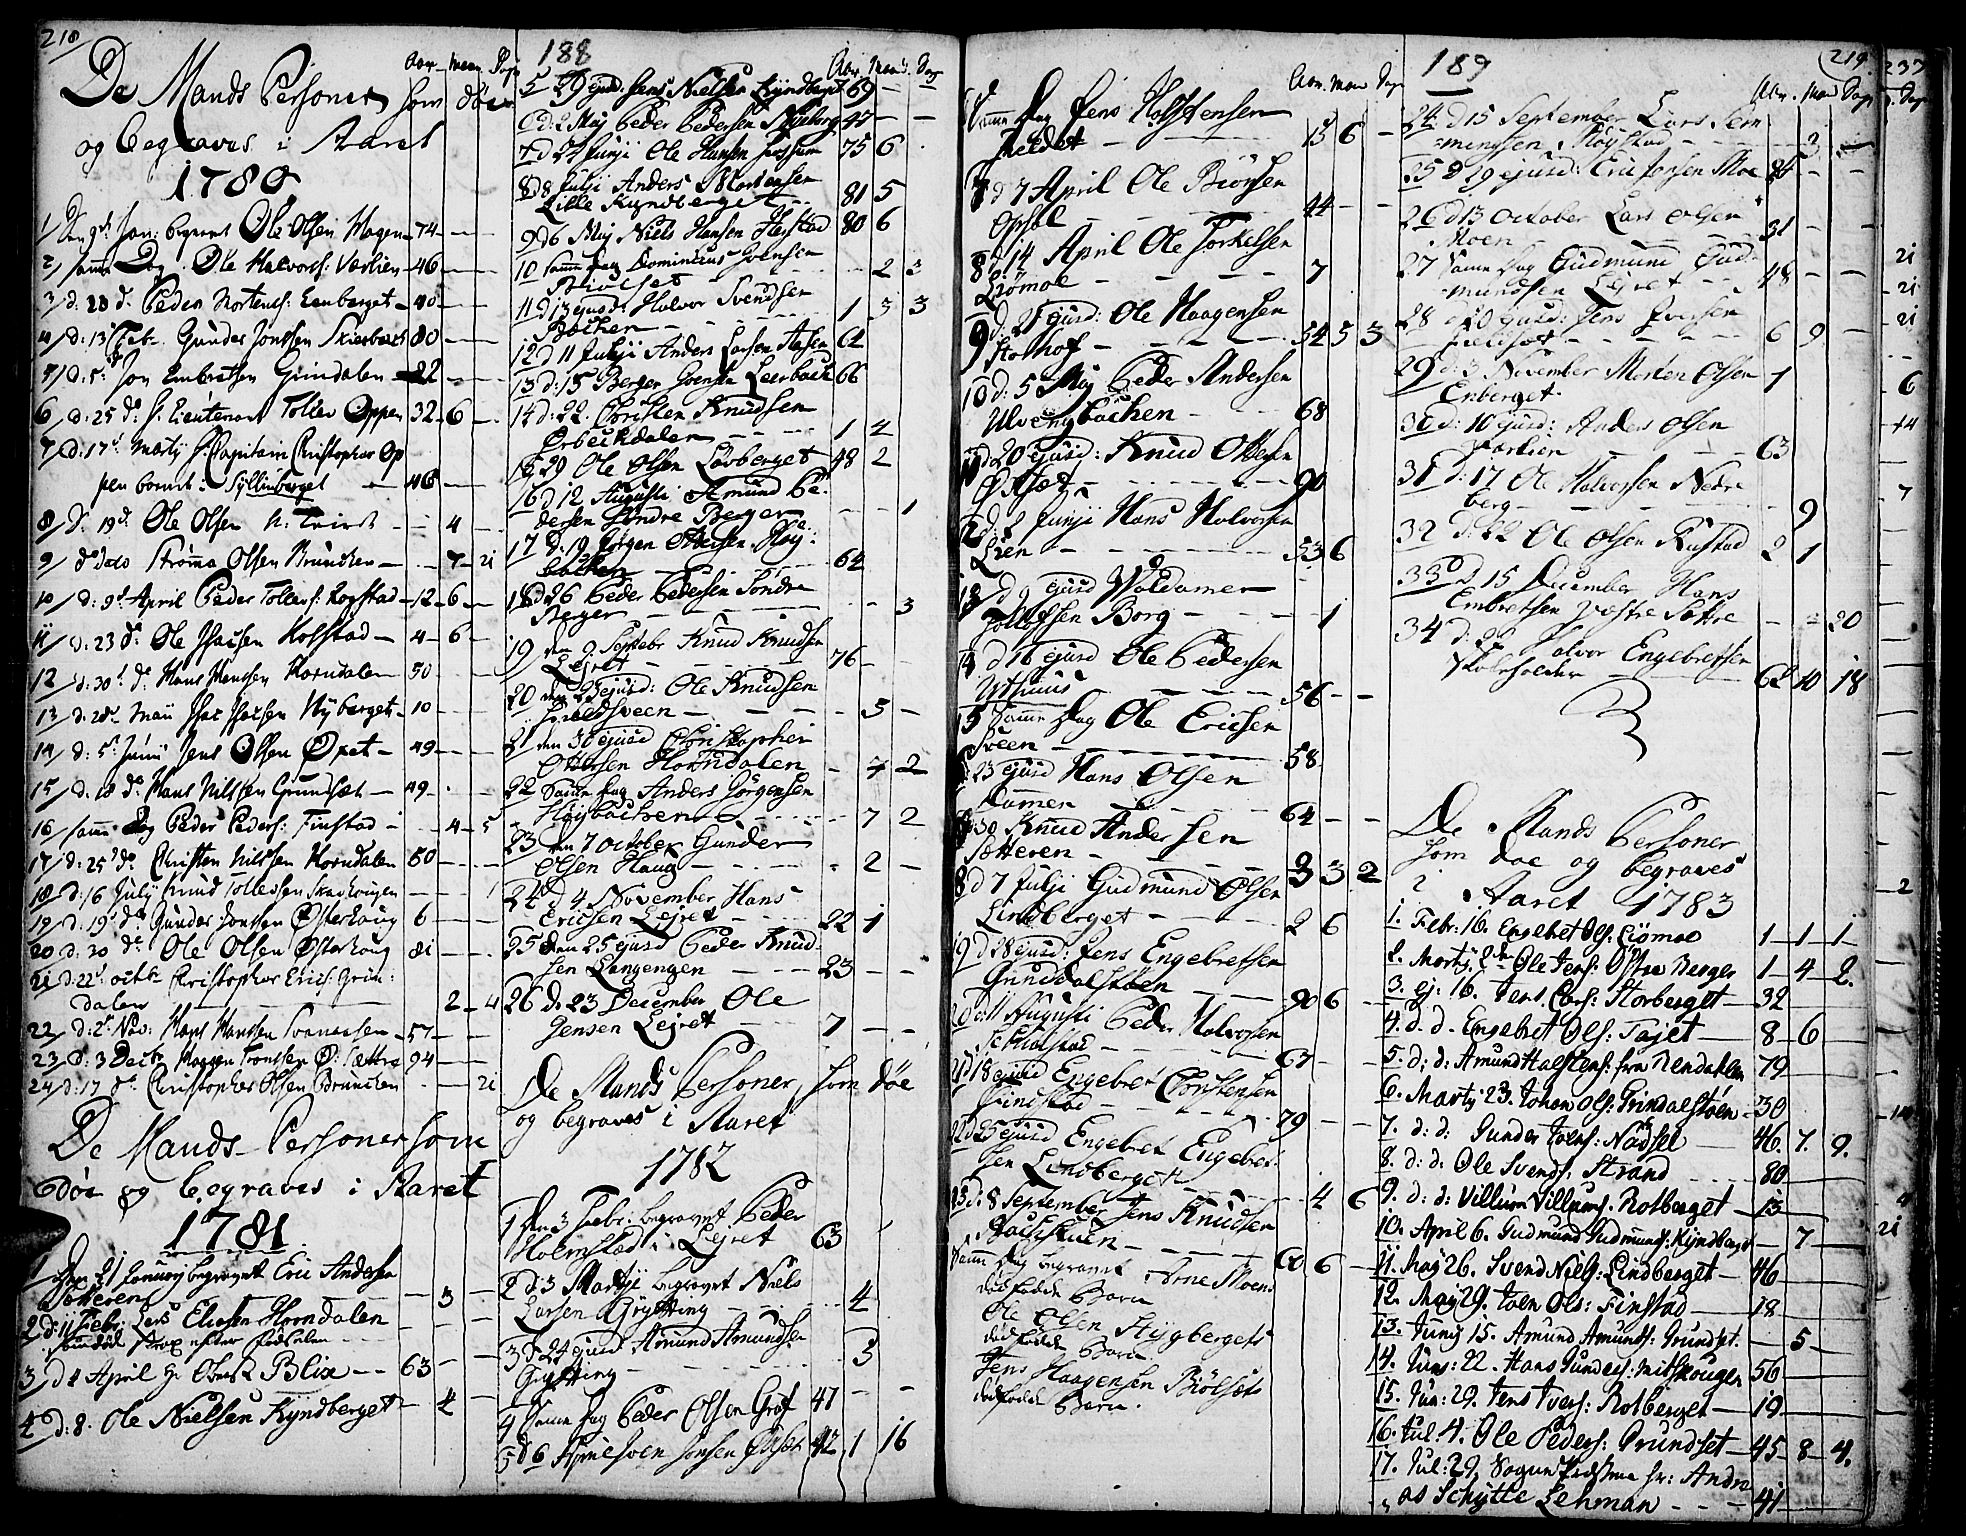 218
De Mands Personer som döe
og begraves i Aaret
1780
Aar. Maan. Dage
1/ Den 9d Jan: begravet Ole Olsen Hagen 74
2/ samme Dag Ole Halvors: Værlien 46
3/ d: 20 d. Peder Mortens: Enberget 40
4/ d: 13 Febr. Gunder Jonssen Skierbech 80
5/ d: 5. Jon Embretsen Grindalen 22
6/ d: 25 d. Hr. Lieutenant Tollev Oppen 32 6
7/ d: 17d Martij Hr. Capitain Christopher Op
pen boend i Syllinberget 46
8/ d: 19d. Ole Olsen 4
9/ do dato Olsen Brunchen 7 21
10/ d: 9d April Peder Tollevs: Rogstad 12 6
11/ d: 23 d. Ole Olsen Kolstad 4 6
12/ d: 30d. d. Hans Hanssen Horndalen 50
13/ d: 28d Maii Nyberget 10
14/ d: 5d Junii Jens Olsen Øxet 49
15/ d. 18 d. Hans Nilssen Grundset 49
16/ samme Dag Peder Peders: Finstad 4 5
17/ d: 25d do Christen Nilssen Horndalen 50
18/ d: 16 July Knud Tollefsen 1
19/ d: 19d do Gunder Jonsen Østerhaug 6
20/ d. 30 do Ole Olsen Østerhaug 81
21/ d: 22d octbr Christopher Erics: Grin:
dalen 2 4
22/ d: 2d Nov: Hans Hanssen 57
23/ d: 3 Decbr Haagen Tronssen Ø: Sættre 94
24/ d: 17 do Christopher Olsen Brunchen 21
De Mands Personer som
döe og begraves i Aaret
1781
1/ Den 21 January begravet Eric Andersen
Sætteren 3
2/ d: 11 Febr: Lars Eliesen Horndalen
som död strax efter födselen
3/ d 2 April Hr Oberst Blix 63
4/ d: 8. Ole Nielsen Kyndberget 4
188
Aar. Maan. Dag
5 29 ejusd: Jens Nielsen Kyndberget 69
6 d: 2 Maj Peder Pedersen Nyeborg 44
7 d 24 Junji Ole Hansen 75 6
8 d 8 Julji Anders Mortensen
Lille Kyndberget 81 5
9 d 6 Maj Niels Hansen Herstad 80 6
10 Samme dag Dominicus Svensen
2 3
11 d 13 ejusd: Halvor Svendsen
Backen 1 3 3
12 d 11 Julji Anders Larsen Aasen 62
13 d: 15 Berger Svensen Leerback 66
14 d: 22. Christen Knudsen
Ørbechdalen 1 4
15 29 Ole Olsen Løvberget 48 2
16 d 12 Augusti Amund Pe
dersen Søndre Berger 1
17 d. 19 Jørgen Ottersen Høy:
backen 64
18 d 26 Peder Pedersen Søndre
Berger 3
19 den 9 Septebr Knud Knudsen
Lejret 76
20 den 23 ejusd: Ole Knudsen
5
21 den 30 ejusd Christopher
Ottersen Horndalen 7 2
22 Samme dag Anders Jörgensen
Høybachen 7 2
23 den 7 October Gunder
Olsen Haug 2
24 d 4 November Hans
Ericsen Lejret 22 1
25 den 25 ejusd Peder Knud
sen Langengen 23
26 d. 23 December Ole
Jensen Lejret 7
De Mands Personer, som döe
og begraves i Aaret
1782
1 den 3 Febr: begravet Peder
Holmstad i Lejret 63
2 d: 3 Martji begravet Niels
Larsen Grytting 4
3 d 24 ejusd Amund Amundsen
Grytting 3
4 Samme dag Peder Olsen Grøf 47
5 d 6 April Sven Jonsen Øxset 42 1 16
Aar. Maan Dag
6 Samme dag Jens Holstensen
Feldet 15 6
7 d 7 April Ole Biörnsen
Opsal 44
8 d. 14 April Ole Torkelsen
Liömoe 7
9 d: 21 ejusd: Ole Haagensen
Stolhof 54 5 3
10 d: 5 Maj Peder Andersen
Ulvengbachen 68
11 d 20 ejusd: Knud Ottersen
Ørset 90
12 d: 2 Junji Hans Halvorsen
Lien 53 6
13 d 9 ejusd Woldomer
Borg 1
14 d 16 ejusd Ole Pedersen
Ythuus 56
15 Samme dag Ole Ericsen
Sveen 58
23 ejusd Hans Olsen
64
30 Knud Andersen
Sætteren 3 3 2
18 d 7 Julji Gudmund Olsen
Lindberget 2 6
19 d 28 ejusd: Jens Engebretsen
Grindalstøen 90 6
20 d: 11 Augusti Peder Halvorsen
67
21 d 18 ejusd Engebret Christensen
Findstad 79
22 d 25 ejusd Engebret Engebret
sen Lindberget 4 6
23 d: 8 September Jens Knudsen
60 6
Samme dag begravet Arne Moens
dödfödde Barn
Ole Olsen Stygbergets
dödfödde Barn
Jens Haagensen Bölsets
dödfödde Barn.
189
219.
Aar. Maan Dag
24 d 15 September Lars Sem
mingsen Høystad 3
25 d 29 ejusd: Eric Jonsen Moe 84
26 d 13 October Lars Olsen
Moen 31
27 Samme dag Gudmund Gud
mundsen Lejret 48
28 d 20 ejusd: Jens Iversen
6 9
29 d: 3 November Morten Olsen
Enberget 1
30 d: 10 ejusd: Anders Olsen
Værlien 63
31 d: 17 Ole Halvorsen Nedre
berg 9
32 d. 22 Ole Olsen Rustad 2 1
33 d 15 December Hans
Embretsen Vestre Sættre 20
34 d: 26 Halvor Engebretsen
Skoleholder 62 10 18
De Mands Personer
som döe og begraves
i Aaret 1783
1. Febr: 16. Engebret Ols: Liömoe 1 1 1
2. Martij 2den Ole Jens: Østre Berger 1 4 2.
3. ej: 16. Jens Lars: Storberget 32
4. d. d. Engebret Ols: Tajet 8 6
5. d: d: Amund Halstens: fra Nendahlen 79
6. Martij 23. Johan Ols: Grindalstøen 30
7. d: d: Gunder Joens: Nödset 46. 7. 9.
8. d: d: Ole Svends. Strand 80
9. d: d: Villum Villums: Rotberget 13
10. April 6. Gudmund Gudmunds: Kyndberget 7
11. Maj 26. Svend Niels: Lindberget 46
12. Maj 29. Joen Ols: Finstad 18
13. Junij 15. Amund Amunds: Grundset. 5
14. Jun: 22. Hans Gunders: Mitskougen 56
15. Jun: 29. Jens Ivers: Rotberget 19
16. Jul. 4. Ole Peders: Grundset 45 8 4.
17. Jul: 29. Sogne Præsten hr: Andre
as Schytte Lehman 41
237
Dag
21
21
21
6
14
7
2
21